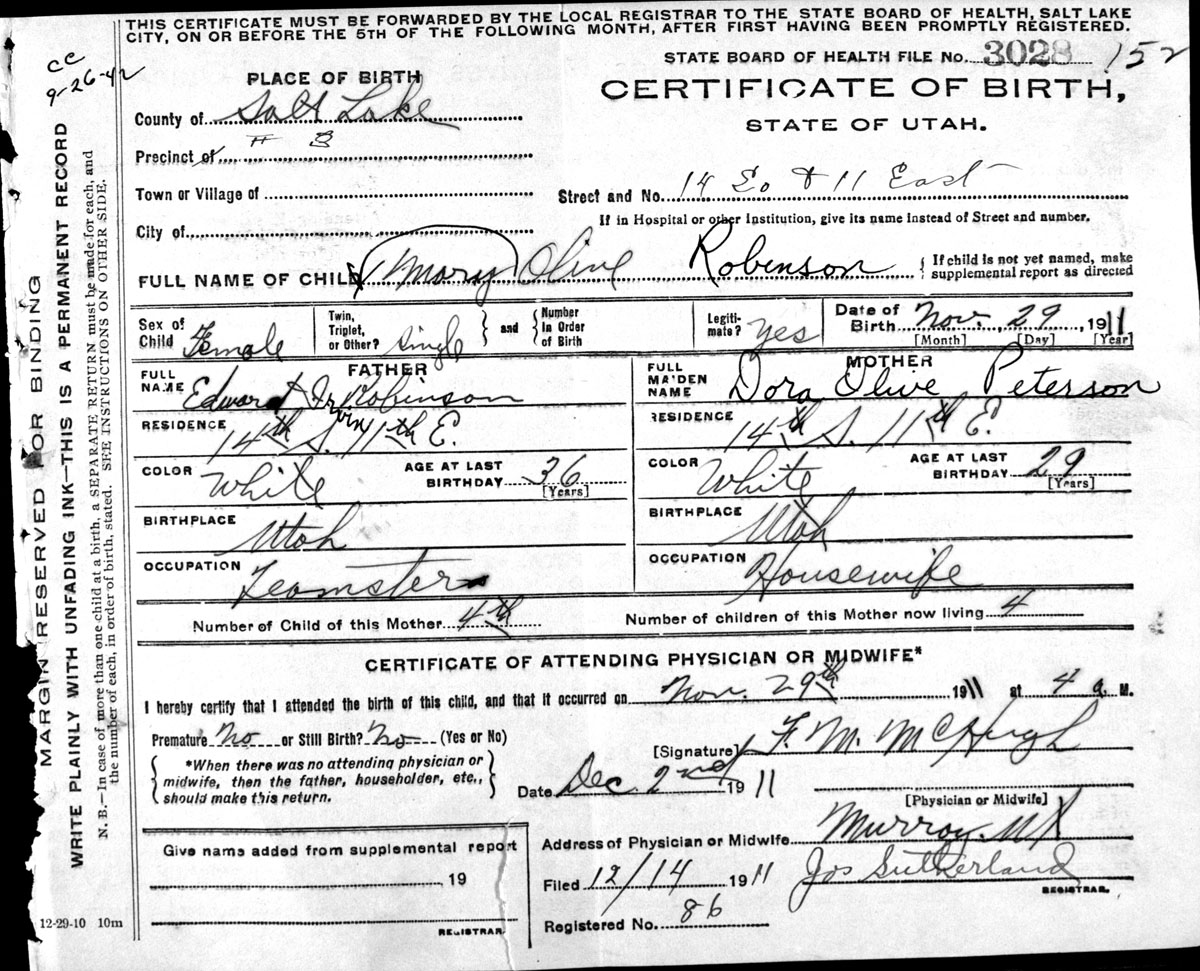 THIS CERTIFICATE MUST BE FORWARDED BY THE LOCAL REGISTRAR TO THE STATE BOARD OF HEALTH, SALT LAKE
CITY, ON OR BEFORE THE 5TH OF THE FOLLOWING MONTH, AFTER FIRST HAVING BEEN PROMPTLY REGISTERED.
CC
9-26-42
STATE BOARD OF HEALTH FILE No. 3028 152
PLACE OF BIRTH
CERTIFICATE OF BIRTH,
STATE OF UTAH.
County of Salt Lake
Precinct of # 3
Town or Village of
Street and No. 14 So & 11 East
If in Hospital or other Institution, give its name instead of Street and number.
City of
FULL NAME OF CHILD (Mary) Olive Robinson { If child is not yet named, make
supplemental report as directed
Sex of Child Female
Twin, Triplet, or Other? Single } and { Number in Order of Birth
Legiti-mate? Yes
Date of Birth Nov. 29, 1911
[Month] [Day] [Year]
FATHER
FULL NAME Edward Irvin Robinson
RESIDENCE 14th S. 11th E.
COLOR White AGE AT LAST BIRTHDAY 36
[Years]
BIRTHPLACE Utah
OCCUPATION Teamster
MOTHER
FULL MAIDEN NAME Dora Olive Peterson
RESIDENCE 14th S. 11th E.
COLOR White AGE AT LAST BIRTHDAY 29
[Years]
BIRTHPLACE Utah
OCCUPATION Housewife
Number of Child of this Mother 4th Number of children of this Mother now living 4
CERTIFICATE OF ATTENDING PHYSICIAN OR MIDWIFE*
I hereby certify that I attended the birth of this child, and that it occurred on Nov. 29th 1911 at 4 a. M.
Premature No or Still Birth? No (Yes or No)
[Signature] F. M. McHugh
{ *When there was no attending physician or
midwife, then the father, householder, etc.,
should make this return. }
Date Dec. 2nd 1911
[Physician or Midwife]
Address of Physician or Midwife Murray. Ut
Give name added from supplemental report
19
REGISTRAR
Filed 12/14 1911 Jos Sutherland
REGISTRAR.
Registered No. 86
12-29-10 10m
MARGIN RESERVED FOR BINDING
WRITE PLAINLY WITH UNFADING INK—THIS IS A PERMANENT RECORD
N. B.—In case of more than one child at a birth, a SEPARATE RETURN must be made for each, and
the number of each, in order of birth, stated. SEE INSTRUCTIONS ON OTHER SIDE.